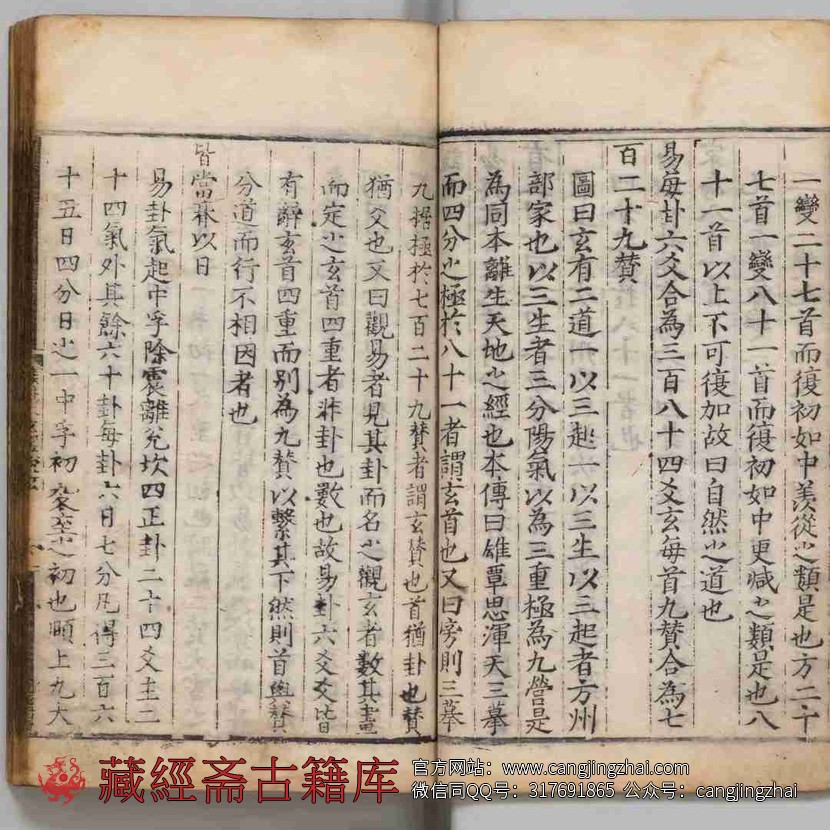 一變二十七首而復初如中羨從之類是也方二十
七首一變八十一首而復初如中更減之類是也八
十一首以上不可復加故曰自然之道也
易每卦六爻合為三百八十四爻玄每首九贊合為七
百二十九贊
圖曰玄有二道一以三起一以三生以三起者方州
部家也以三生者三分陽氣以為三重極為九營是
為同本離生天地之經也本傳曰雄覃思渾天三摹
而四分之極於八十一者謂玄首也又曰旁則三摹
九据極於七百二十九贊者謂玄贊也首猶卦也贊
猶爻也又曰觀易者見其卦而名之觀玄者數其畫
而定之玄首四重者非卦也數也故易卦六爻爻皆
有辭玄首四重而別為九贊以繫其下然則首與贊
分道而行不相因者也
皆當朞以日
易卦氣起中孚除震離兌坎四正卦二十四爻主二
十四氣外其餘六十卦每卦六日七分凡得三百六
十五日四分日之一中孚初之初也頤上九大
藏經斋古籍库
官方网站：www.cangjingzhai.com
微信同QQ号：317691865 公众号：cangjingzhai